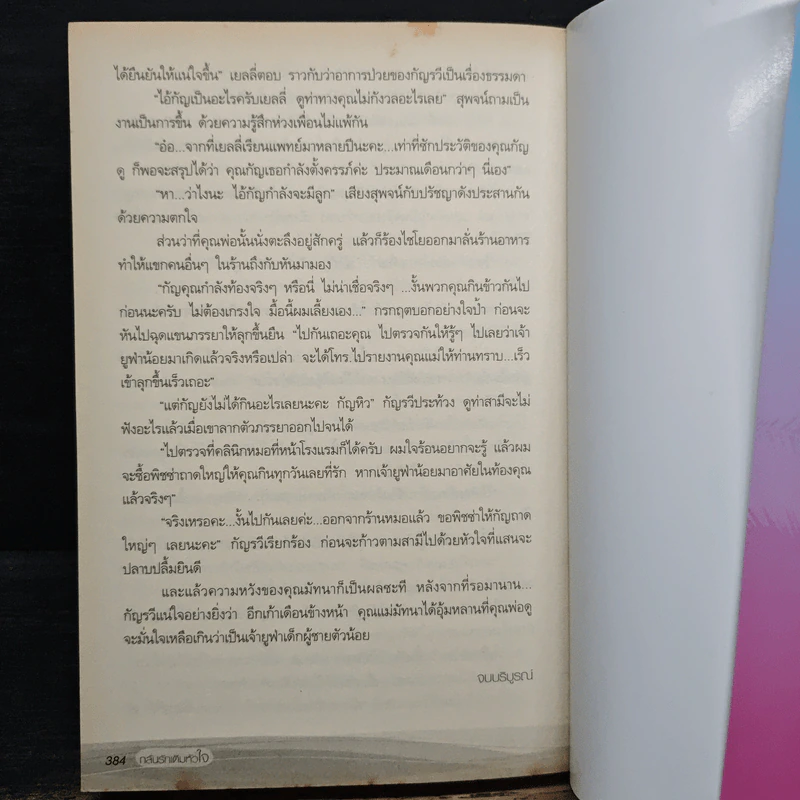 ได้ยืนยันให้แน่ใจขึ้น” เยลลี่ตอบ ราวกับว่าอาการป่วยของกัญรวีเป็นเรื่องธรรมดา
“ไอ้กัญเป็นอะไรครับเยลลี่ ดูท่าทางคุณไม่กังวลอะไรเลย” สุพจน์ถามเป็น
งานเป็นการขึ้น ด้วยความรู้สึกห่วงเพื่อนไม่แพ้กัน
“อ๋อ...จากที่เยลลี่เรียนแพทย์มาหลายปีนะคะ...เท่าที่ซักประวัติของคุณกัญ
ดู ก็พอจะสรุปได้ว่า คุณกัญเธอกำลังตั้งครรภ์ค่ะ ประมาณเดือนกว่าๆ นี่เอง”
“หา...ว่าไงนะ ไอ้กัญกำลังจะมีลูก” เสียงสุพจน์กับปรัชญาดังประสานกัน
ด้วยความตกใจ
ส่วนว่าที่คุณพ่อนั้นนั่งตะลึงอยู่สักครู่ แล้วก็ร้องไชโยออกมาลั่นร้านอาหาร
ทำให้แขกคนอื่นๆ ในร้านถึงกับหันมามอง
“กัญคุณกำลังท้องจริงๆ หรือนี่ ไม่น่าเชื่อจริงๆ ...งั้นพวกคุณกินข้าวกันไป
ก่อนนะครับ ไม่ต้องเกรงใจ มื้อนี้ผมเลี้ยงเอง...” กรกฤตบอกอย่างใจป้ำ ก่อนจะ
หันไปฉุดแขนภรรยาให้ลุกขึ้นยืน “ไปกันเถอะคุณ ไปตรวจกันให้รู้ๆ ไปเลยว่าเจ้า
ยูฟ่าน้อยมาเกิดแล้วจริงหรือเปล่า จะได้โทร.ไปรายงานคุณแม่ให้ท่านทราบ...เร็ว
เข้าลุกขึ้นเร็วเถอะ”
“แต่กัญยังไม่ได้กินอะไรเลยนะคะ กัญหิว” กัญรวีประท้วง ดูท่าสามีจะไม่
ฟังอะไรแล้วเมื่อเขาลากตัวภรรยาออกไปจนได้
“ไปตรวจที่คลินิกหมอที่หน้าโรงแรมก็ได้ครับ ผมใจร้อนอยากจะรู้ แล้วผม
จะซื้อพิซซ่าถาดใหญ่ให้คุณกินทุกวันเลยที่รัก หากเจ้ายูฟ่าน้อยมาอาศัยในท้องคุณ
แล้วจริงๆ”
“จริงเหรอคะ...งั้นไปกันเลยค่ะ...ออกจากร้านหมอแล้ว ขอพิซซ่าให้กัญถาด
ใหญ่ๆ เลยนะคะ” กัญรวีเรียกร้อง ก่อนจะก้าวตามสามีไปด้วยหัวใจที่แสนจะ
ปลาบปลื้มยินดี
และแล้วความหวังของคุณมัทนาก็เป็นผลซะที หลังจากที่รอมานาน...
กัญรวีแน่ใจอย่างยิ่งว่า อีกเก้าเดือนข้างหน้า คุณแม่มัทนาได้อุ้มหลานที่คุณพ่อดู
จะมั่นใจเหลือเกินว่าเป็นเจ้ายูฟ่าเด็กผู้ชายตัวน้อย
จบบริบูรณ์
384 กลั่นรักเติมหัวใจ